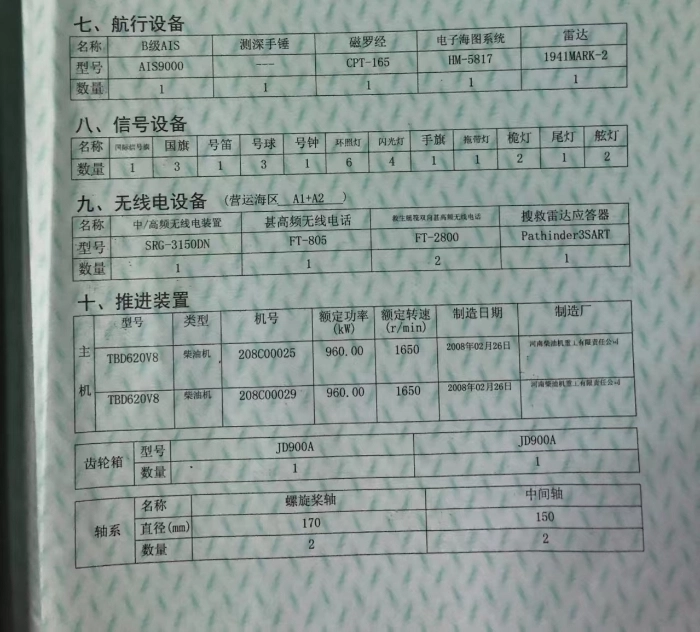 七、航行设备
名称 B级AIS 测深手锤 磁罗经 电子海图系统 雷达
型号 AIS9000 --- CPT-165 HM-5817 1941MARK-2
数量 1 1 1 1 1
八、信号设备
名称 国旗 号笛 号球 号钟 环照灯 闪光灯 手旗 拖带灯 桅灯 尾灯 舷灯
数量 1 3 1 3 1 6 4 1 1 2 1 2
九、无线电设备 (营运海区 A1+A2 )
名称 中/高频无线电装置 甚高频无线电话 救生艇筏双向甚高频无线电话 搜救雷达应答器
型号 SRG-3150DN FT-805 FT-2800 Pathinder3SART
数量 1 1 2 1
十、推进装置
型号 类型 机号 额定功率(kW) 额定转速(r/min) 制造日期 制造厂
主机
TBD620V8 柴油机 208C00025 960.00 1650 2008年02月26日 河南柴油机重工有限责任公司
TBD620V8 柴油机 208C00029 960.00 1650 2008年02月26日 河南柴油机重工有限责任公司
齿轮箱
型号 JD900A JD900A
数量 1 1
轴系
名称 螺旋桨轴 中间轴
直径(mm) 170 150
数量 2 2